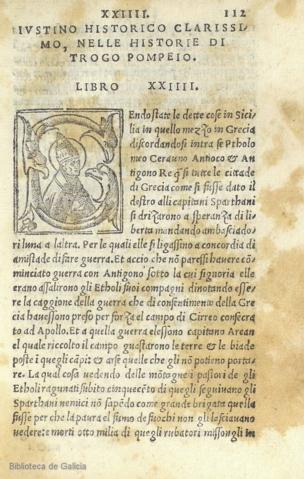 XXIIII. 112
IVSTINO HISTORICO CLARISSI
MO, NELLE HISTORIE DI
TROGO POMPEIO.
LIBRO XXIIII.
Endo state le dette cose in Sici,
lia in quello mezzo in Grecia
discordandosi intra se Ptholo
meo Cerauno Antioco & An
tigono Re q̃si tutte le cittade
di Grecia come si fusse dato il
destro alli capitani Sparthani
si drizarono a speranza di li
berta mandando ambasciado
ri luna a laltra. Per le quali elle si ligassino a concordia di
amistade di fare guerra. Et accio che nõ paressi havere co
minciato guerra con Antigono sotto la cui signoria elle
erano assalirono gli Etholi suoi compagni dinotando esse
re la caggione della guerra che di consentimento della Gre
cia havessono preso per forza el campo di Cirreo consecra
to ad Apollo. Et a quella guerra elessono capitano Arean
el quale riccolto il campo guastarono le terre & le biade
poste i quegli cãpi: & arse quelle che gli nõ potieno porta,
re. La qual cosa vedendo delle mõtagne i pastori de gli
Etholi ragunati subito cinquecẽto di quegli seguirono gli
Sparthani nemici nõ sapẽdo come grande brigata quella
fusse per che la paura el fumo de fuochi non gli lasciavano
vedere: e morti otto milia di quegli rubatori missongli in
Biblioteca de Galicia